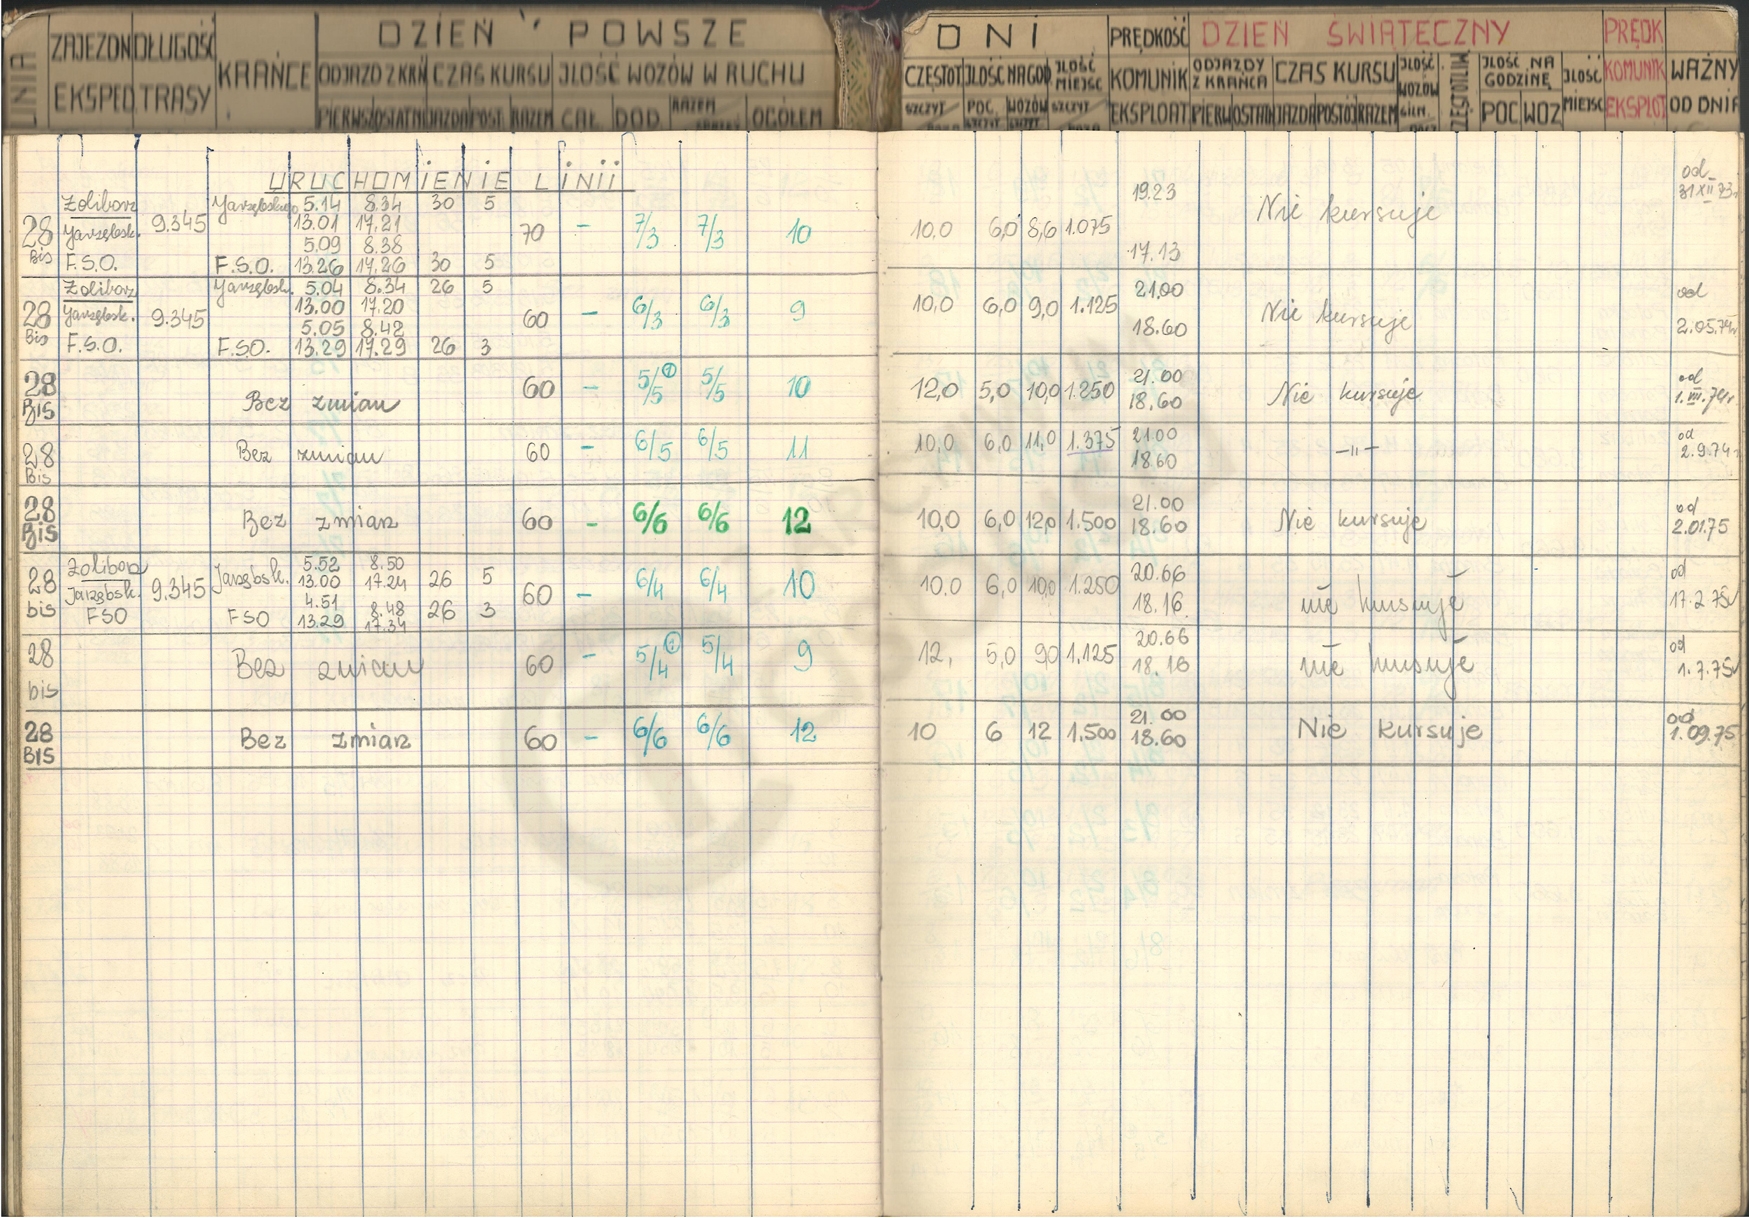 LINIA ZAJEZDN. EKSPED. DŁUGOŚĆ TRASY KRAŃCE DZIEŃ POWSZE
ODJAZD Z KRAŃ CZAS KURSU JLOŚĆ WOZÓW W RUCHU
PIERWSZ OSTATNI JAZDA POST. RAZEM CAŁ. DOD. RAZEM OGÓŁEM
DNI PRĘDKOŚĆ KOMUNIK EKSPLOAT DZIEŃ ŚWIĄTECZNY PRĘDK KOMUNIK EKSPLOT WAŻNY OD DNIA
CZĘSTOT JLOŚĆ NA GOD JLOŚĆ MIEJSC ODJAZDY Z KRAŃCA CZAS KURSU JLOŚĆ WOZÓW CZĘSTOTLIW JLOŚĆ NA GODZINĘ JLOŚĆ MIEJSC
SZCZYT POC. SZCZYT WOZÓW SZCZYT SZCZYT PIERW OSTATN JAZDA POSTÓJ RAZEM POC WOZ
URUCHOMIENIE LINII
28 Bis Żoliborz Jarzębsk. F.S.O. 9.345 Jarzębskiego 5.14 8.34 30 5
13.01 17.21
5.09 8.38
F.S.O. 13.26 17.26 30 5
70 - 7/3 7/3 10 10,0 6,0 8,6 1.075 19.23 17.13 Nie kursuje od 31 XII 73r
28 Bis Żoliborz Jarzębsk. F.S.O. 9.345 Jarzębsk. 5.04 8.34 26 5
13.00 17.20
5.05 8.42
F.S.O. 13.29 17.29 26 3
60 - 6/3 6/3 9 10,0 6,0 9,0 1.125 21.00 18.60 Nie kursuje od 2.05.74r
28 BIS Bez zmian 60 - 5/5 5/5 10 12,0 5,0 10,0 1.250 21.00 18.60 Nie kursuje od 1.VII.74r
28 Bis Bez zmian 60 - 6/5 6/5 11 10,0 6,0 11,0 1.375 21.00 18.60 -"- od 2.9.74r
28 BIS Bez zmian 60 - 6/6 6/6 12 10,0 6,0 12,0 1.500 21.00 18.60 Nie kursuje od 2.01.75
28 bis Żoliborz Jarzębsk. FSO 9.345 Jarzębsk. 5.52 8.50 26 5
13.00 17.24
4.51 8.48
FSO 13.29 17.34 26 3
60 - 6/4 6/4 10 10.0 6,0 10,0 1.250 20.66 18.16 nie kursuje od 17.2.75r
28 bis Bez zmian 60 - 5/4 5/4 9 12, 5,0 9,0 1.125 20.66 18.16 nie kursuje od 1.7.75r
28 BIS Bez zmian 60 - 6/6 6/6 12 10 6 12 1.500 21.00 18.60 Nie kursuje od 1.09.75